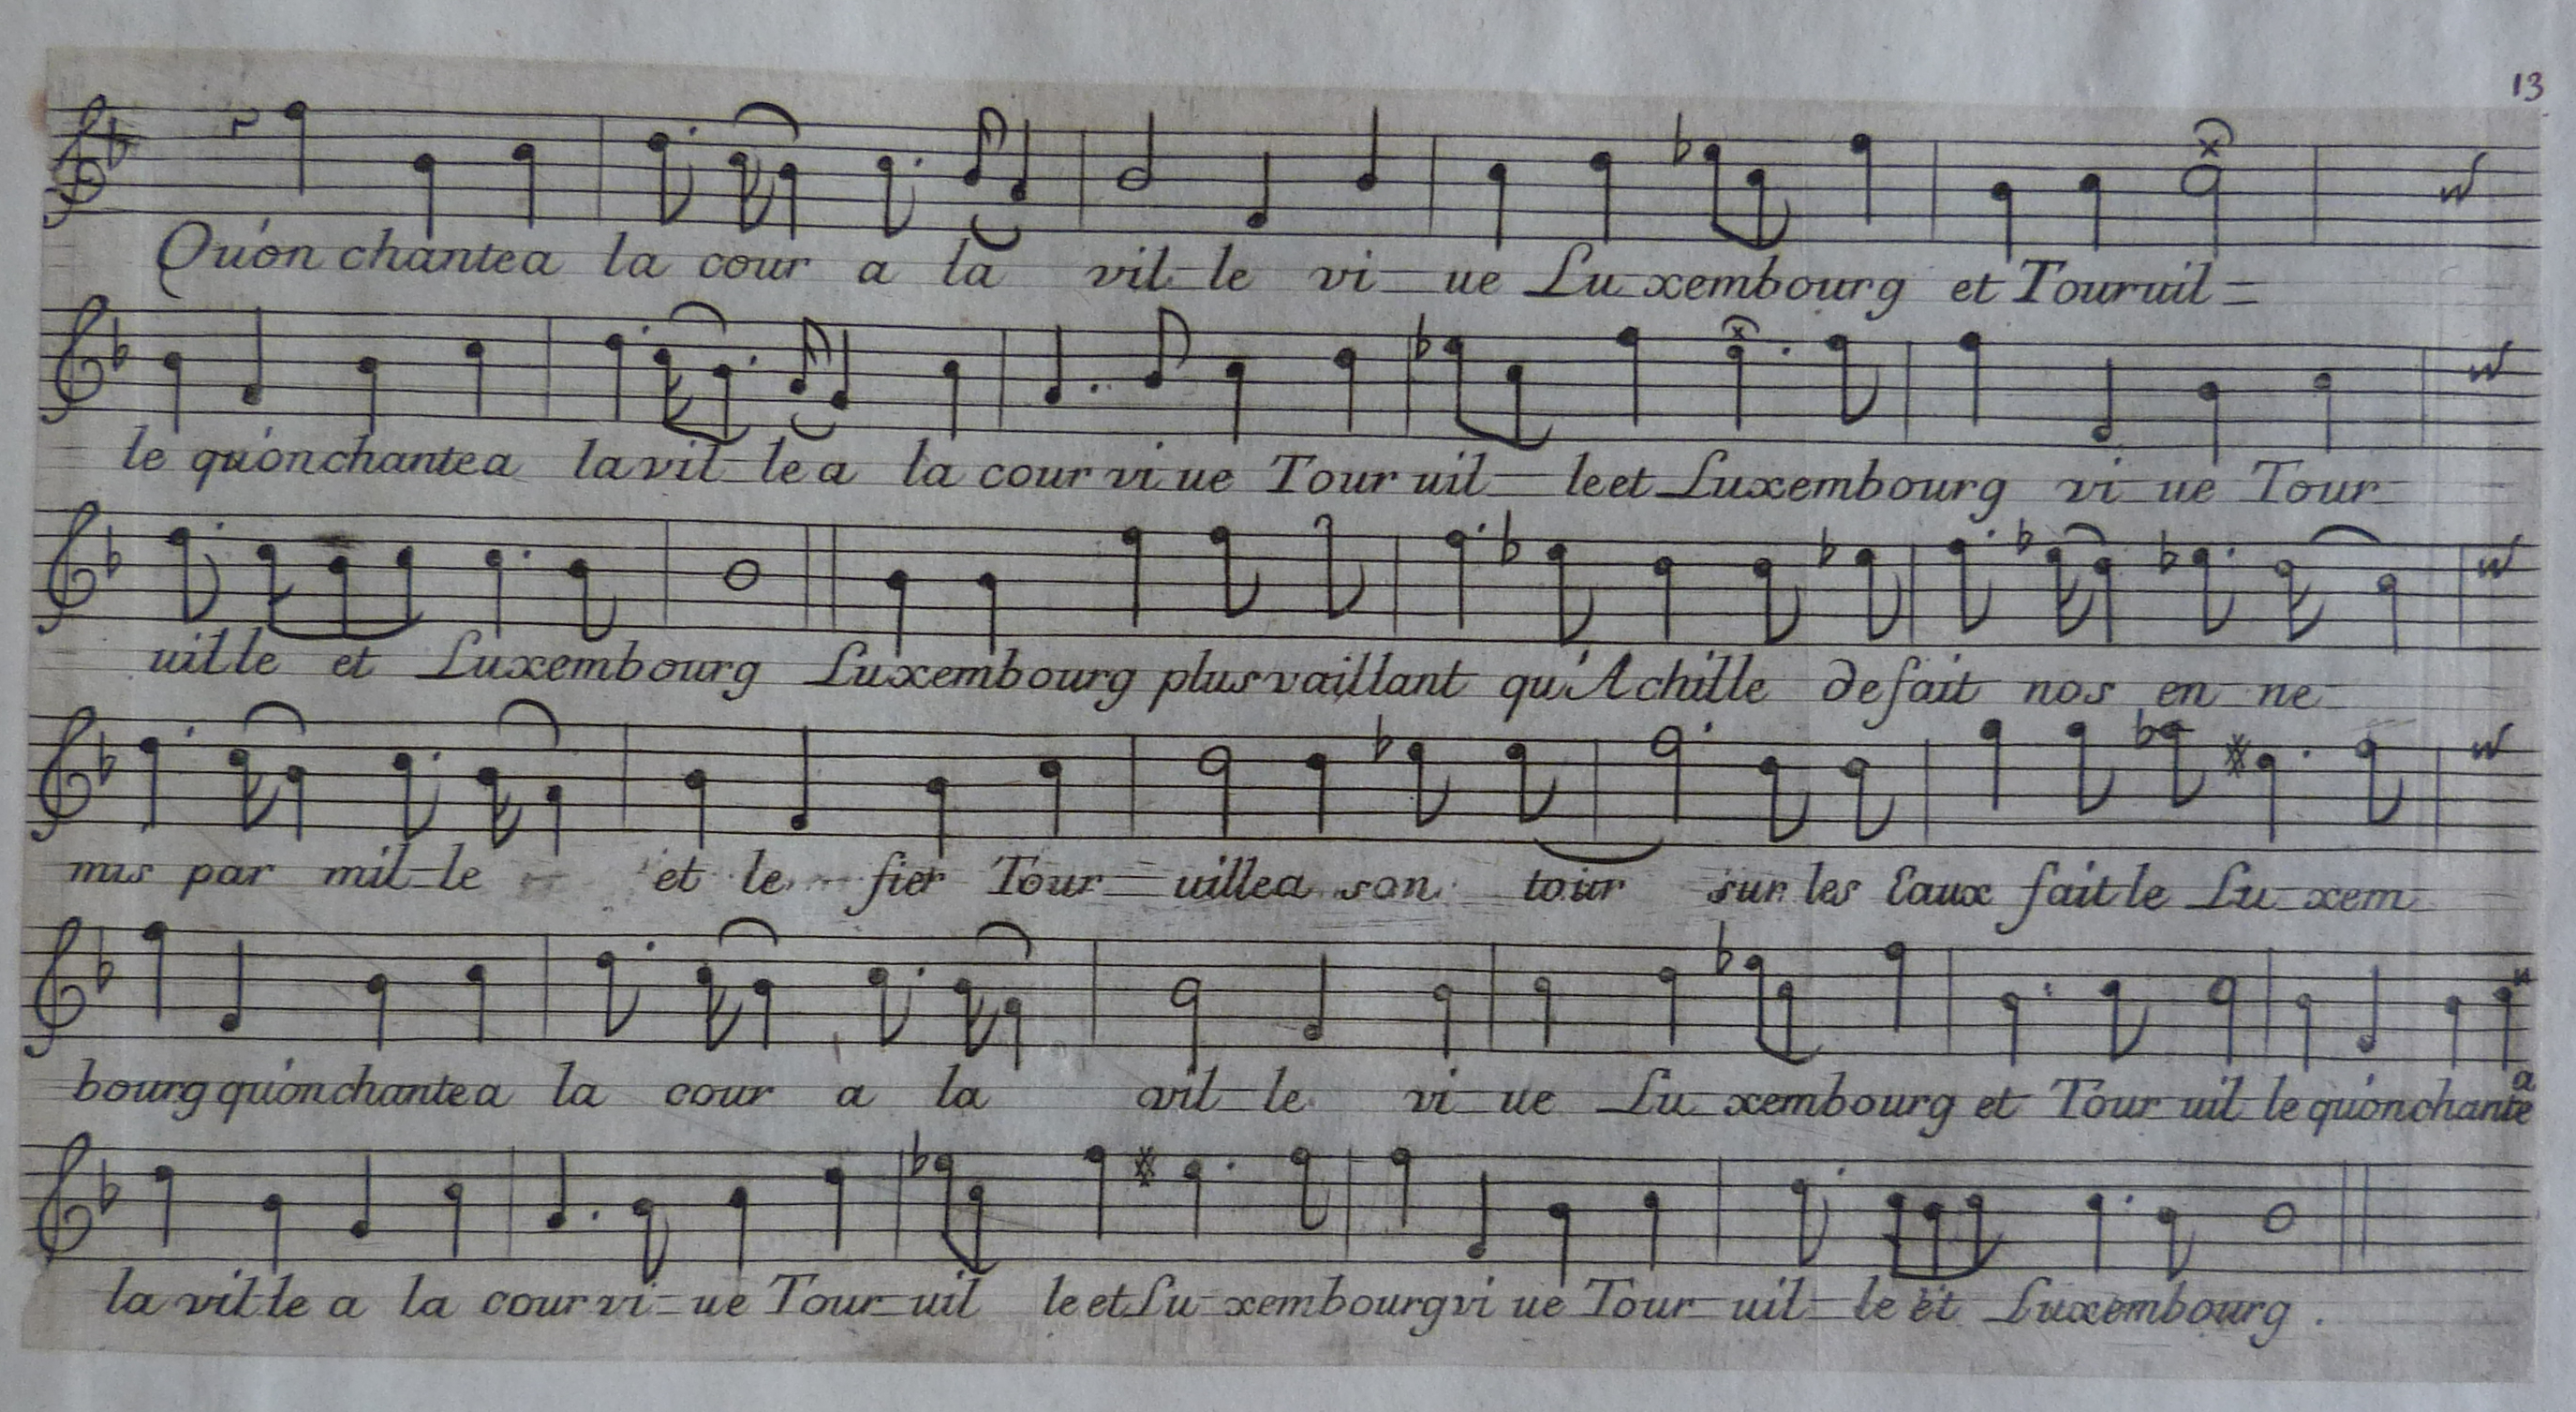 13
Qu'on chante a la cour a la vil le vi ue Lu xembourg et Touruil =
le qu'on chante a la vil le a la cour vi ue Tour uil le et Luxembourg vi ue Tour
uille et Luxembourg Luxembourg plus vaillant qu'Achille defait nos en ne
mis par mil le et le fier Tour uille a son tour sur les Eaux fait le Lu xem
bourg qu'on chante a la cour a la vil le vi ue Lu xembourg et Tour uil le qu'on chante a
la vil le a la cour vi ue Tour uil le et Lu xembourg vi ue Tour uil le et Luxembourg .